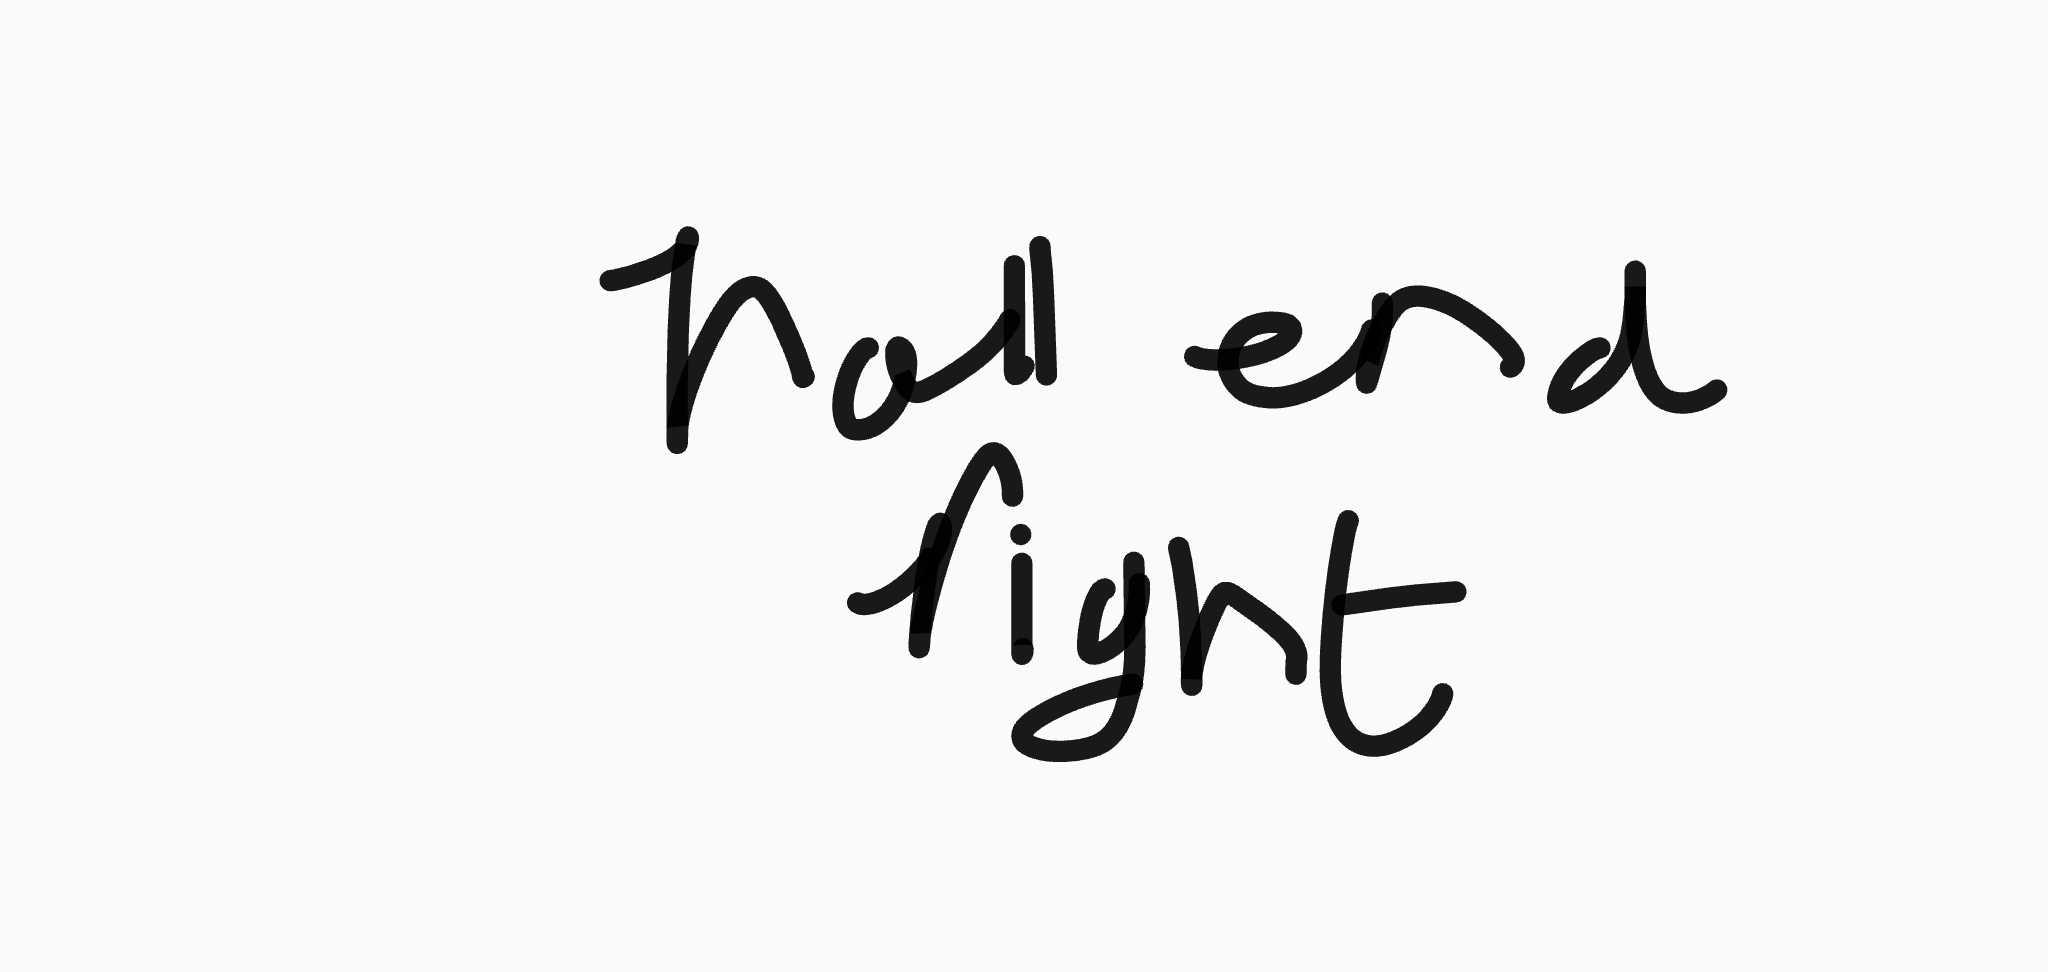 hall end
right